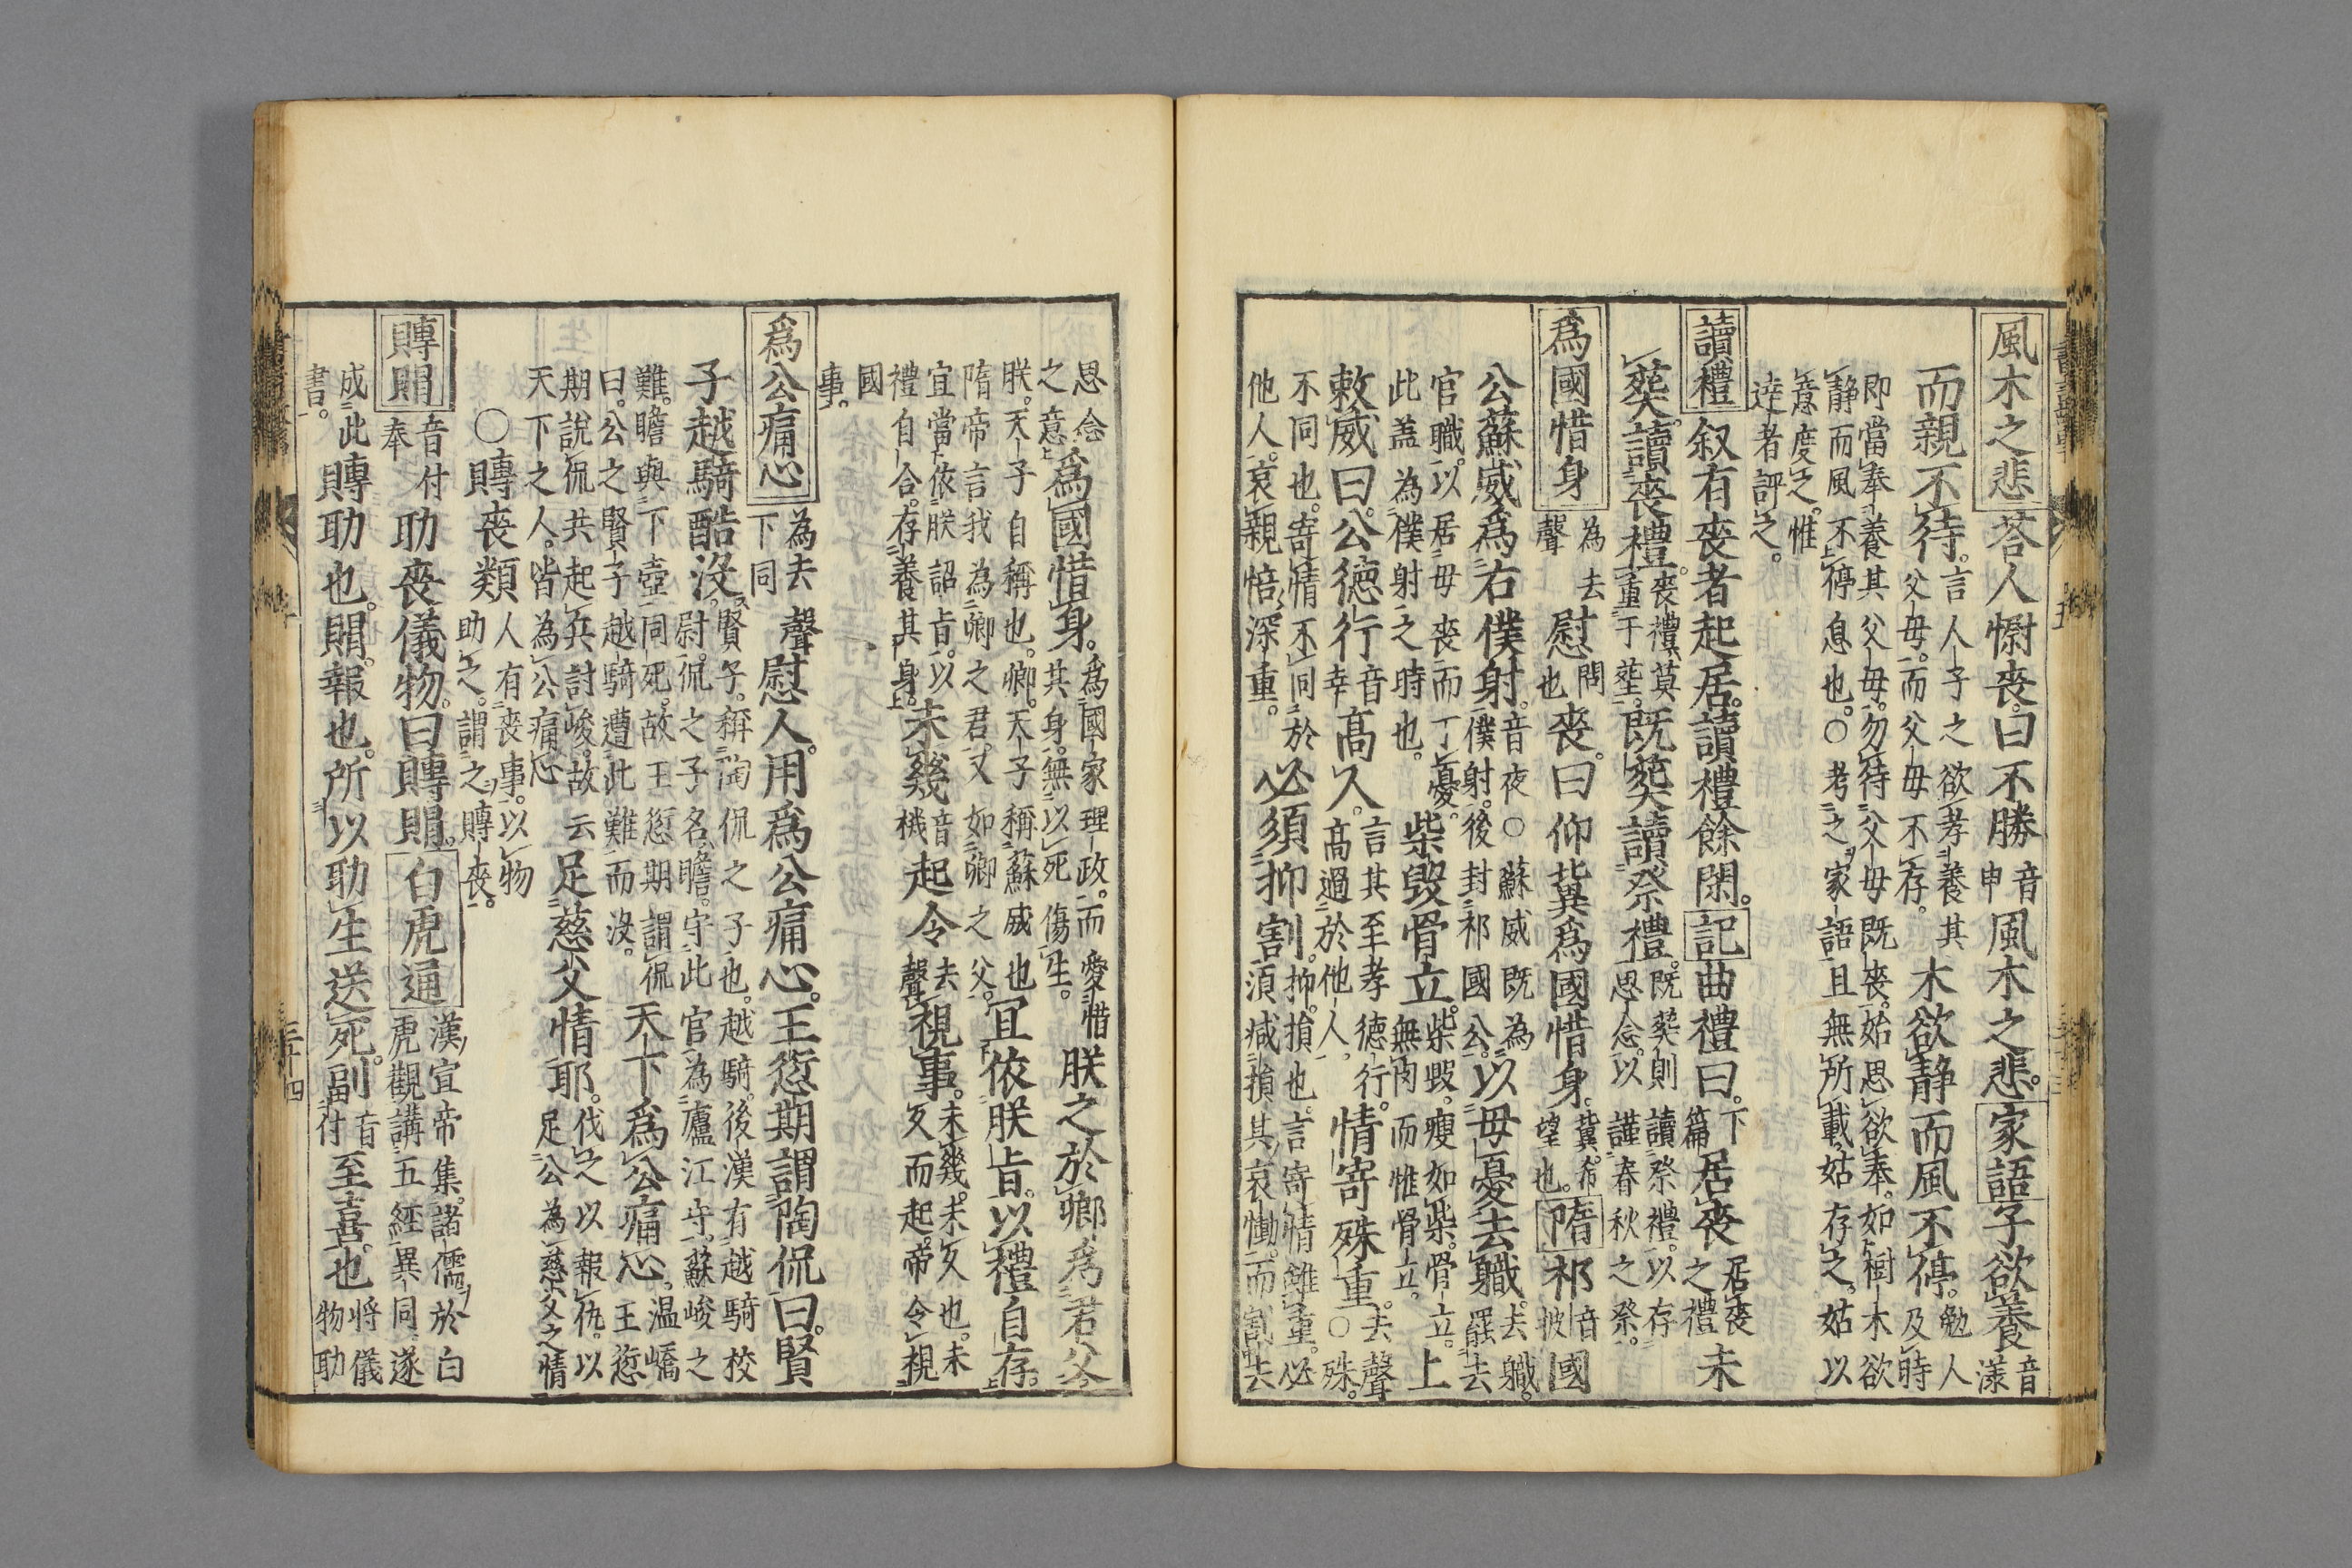 風木之悲 荅人慰喪曰不勝 音申 風木之悲 家語 子欲養 音漾
而親不待 言人子之欲孝養其父母而父母不存 木欲静而風不停 勉人及時
即當奉養其父母勿待父母既喪始思欲奉如樹木欲
静而風不停息也○考之家語且無所載姑存之姑以
意度之惟
達者評之
讀禮 叙有喪者起居讀禮餘閑 記 曲禮曰 下篇 居喪 居喪之禮 未
葬讀喪禮 喪禮莫重于塟 既葬讀祭禮 既葬則讀祭禮以存思念以謹春秋之祭
為國惜身 為去聲 慰 問也 喪曰仰冀為國惜身 冀希望也 隋 祁 音被 國
公蘇威為右僕射 音夜○蘇威既為僕射後封祁國公 以母憂去職 去職罷去
官職以居母喪而丁憂
此蓋為僕射之時也 柴毀骨立 柴毀瘦如柴骨立無肉而惟骨立 上
敕威曰公德行 音幸 高人 言其至孝德行高過於他人 情寄殊重 去聲○殊
不同也寄情不同於
他人哀親悟深重 必須抑割 抑損也言寄情雖重必須减損其哀慟而割去
思念
之意 為國惜身 為國家理政而愛惜其身無以死傷生 朕之於卿為君父
朕天子自稱也卿天子稱蘇威也
隋帝言我為卿之君又如卿之父 宜依朕旨以禮自存
宜當依朕詔旨以
禮自合存養其身 未幾 音機 起令 去聲 視事 未幾未久也未久而起帝令視
國
事
為公痛心 為去聲下同 慰人用為公痛心王愆期謂陶侃曰賢
子越騎酷沒 賢子稱陶侃之子也越騎後漢有越騎校尉侃之子名瞻守此官為廬江守蘇峻之
難瞻與卞壼同死故王愆期謂侃
曰公之賢子越騎遭此難而沒 天下為公痛心 温嶠王愆
期說侃共起兵討峻故云
天下之人皆為公痛心 足慈父情耶 伐之以報仇以足公為慈父之情
○賻喪類 人有喪事以物助之謂之賻喪
賻賵 音付奉 助喪儀物曰賻賵 白虎通 漢宣帝集諸儒於白虎觀講五經異同遂
成此
書 賻助也賵報也所以助生送死副 音付 至喜也 将儀物助
三十四